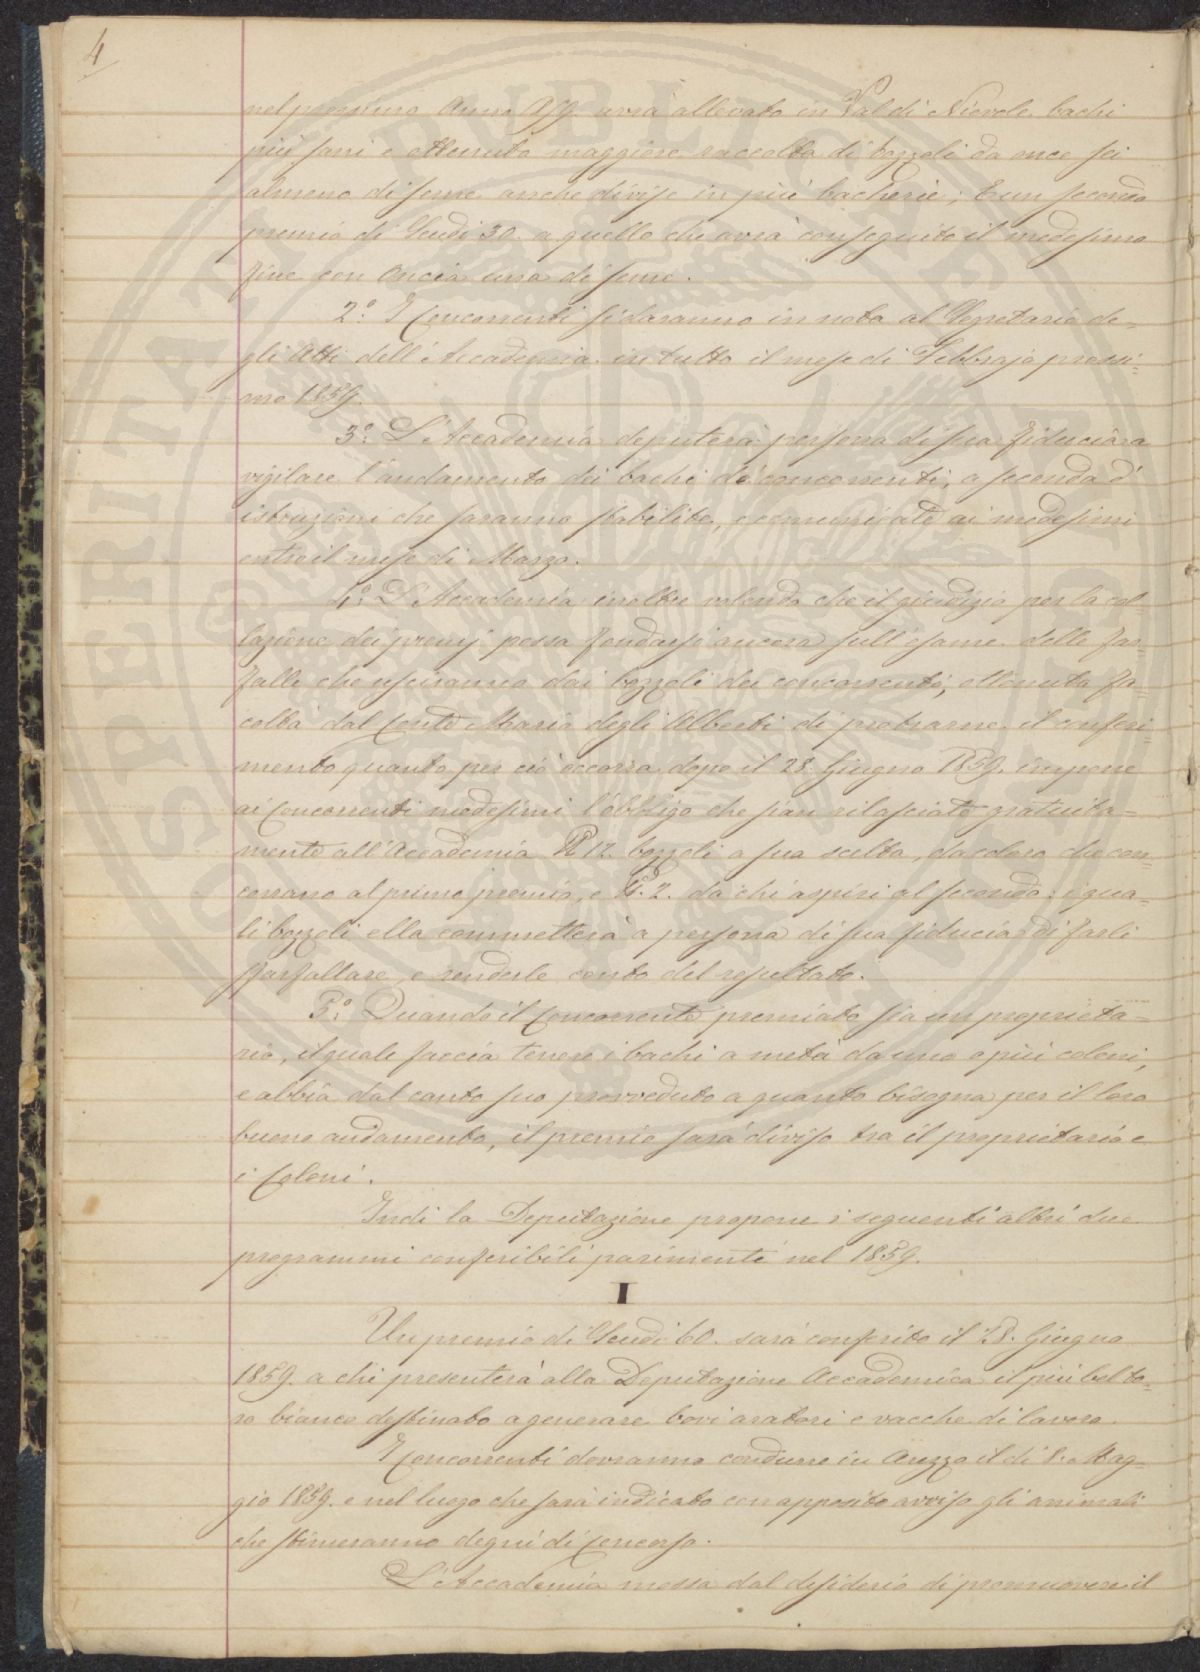 4
nel prossimo Anno 1859. avrà allevato in Val di Nievole bachi
più sani e ottenuta maggiore raccolta di bozzoli da once sei
almeno di seme anche divise in più bacherie; E un secondo
premio di Scudi 30. a quello che avrà conseguito il medesimo
fine con Oncia una di seme.
2.° I Concorrenti si daranno in nota al Segretario de=
gli Atti dell'Accademia in tutto il mese di Febbrajo prossi=
mo 1859.
3.° L'Accademia deputerà persona di sua fiducia a
vigilare l'andamento dei bachi de' concorrenti, a seconda d'
istruzioni che saranno stabilite, e comunicate ai medesimi
entro il mese di Marzo.
4.° L'Accademia inoltre volendo che il giudizio per la col=
lazione dei premj possa fondarsi ancora sull'esame delle far=
falle che usciranno dai bozzoli dei concorrenti, ottenuta fa=
coltà dal Conte Mario degli Alberti di protrarne il conferi=
mento quanto per ciò occorra dopo il 28. Giugno 1859. impone
ai Concorrenti medesimi l'obbligo che sian rilasciate gratuita=
mente all'Accademia 12. bozzoli a sua scelta, da coloro che con=
corrano al primo premio, e 2. da chi aspiri al secondo: i qua=
li bozzoli ella commetterà a persona di sua fiducia di farli
sfarfallare, e renderle conto del resultato.
5.° Quando il Concorrente premiato sia un proprieta=
rio, il quale faccia tenere i bachi a metà da uno o più coloni,
e abbia dal canto suo provveduto a quanto bisogna per il loro
buono andamento, il premio sarà diviso tra il proprietario e
i Coloni.
Indi la Deputazione propone i seguenti altri due
programmi conferibili parimente nel 1859.
I
Un premio di Scudi 60. sarà conferito il 28. Giugno
1859. a chi presenterà alla Deputazione Accademica il più bel to=
ro bianco destinato a generare bovi aratori e vacche di lavoro.
I Concorrenti dovranno condurre in Arezzo il dì Mag=
gio 1859. e nel luogo che sarà indicato con apposito avviso gli animali
che stimeranno degni di Concorso.
L'Accademia mossa dal desiderio di promuovere il
SPERITAT PUBLICAE